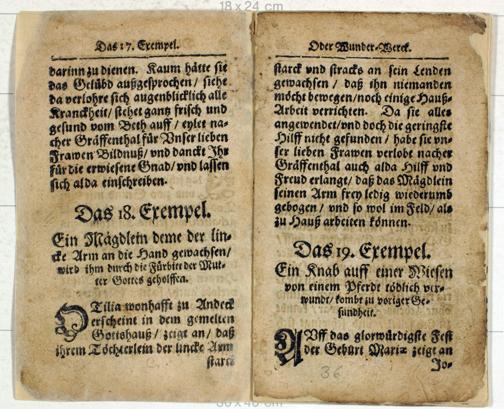 18 x 24 cm
Das 17. Exempel.
darinn zu dienen. Kaum hätte sie
das Gelübd außgesprochen / siehe
da verlohre sich augenblicklich alle
Kranckheit / stehet gantz frisch und
gesund vom Beth auff / eylet na-
cher Gräffenthal für Vnser lieben
Frawen Bildnuß / vnd danckt Ihr
für die erwiesene Gnad / vnd lassen
sich alda einschreiben.
Das 18. Exempel.
Ein Mägdlein deme der lin-
cke Arm an die Hand gewachsen /
wird ihm durch die Fürbitt der Mut-
ter Gottes geholffen.
OTilia wonhafft zu Andeck
erscheint in dem gemelten
Gottshauß / zeigt an / daß
ihrem Töchterlein der lincke Arm
starck
Oder Wunder-Werck.
starck vnd stracks an sein Lenden
gewachsen / daß ihn niemanden
möcht bewegen / noch einige Hauß-
Arbeit verrichten. Da sie alles
angewendet / vnd doch die geringste
Hilff nicht gefunden / habe sie vn-
ser lieben Frawen verlobt nacher
Gräffenthal auch alda Hilff vnd
Freud erlangt / daß das Mägdlein
seinen Arm frey ledig wiederumb
gebogen / vnd so wol im Feld / als
zu Hauß arbeiten können.
Das 19. Exempel.
Ein Knab auff einer Wiesen
von einem Pferdt tödlich ver-
wundt / kombt zu voriger Ge-
sundheit.
AVff das glorwürdigste Fest
der Geburt Mariæ zeigt an
Jo-
36